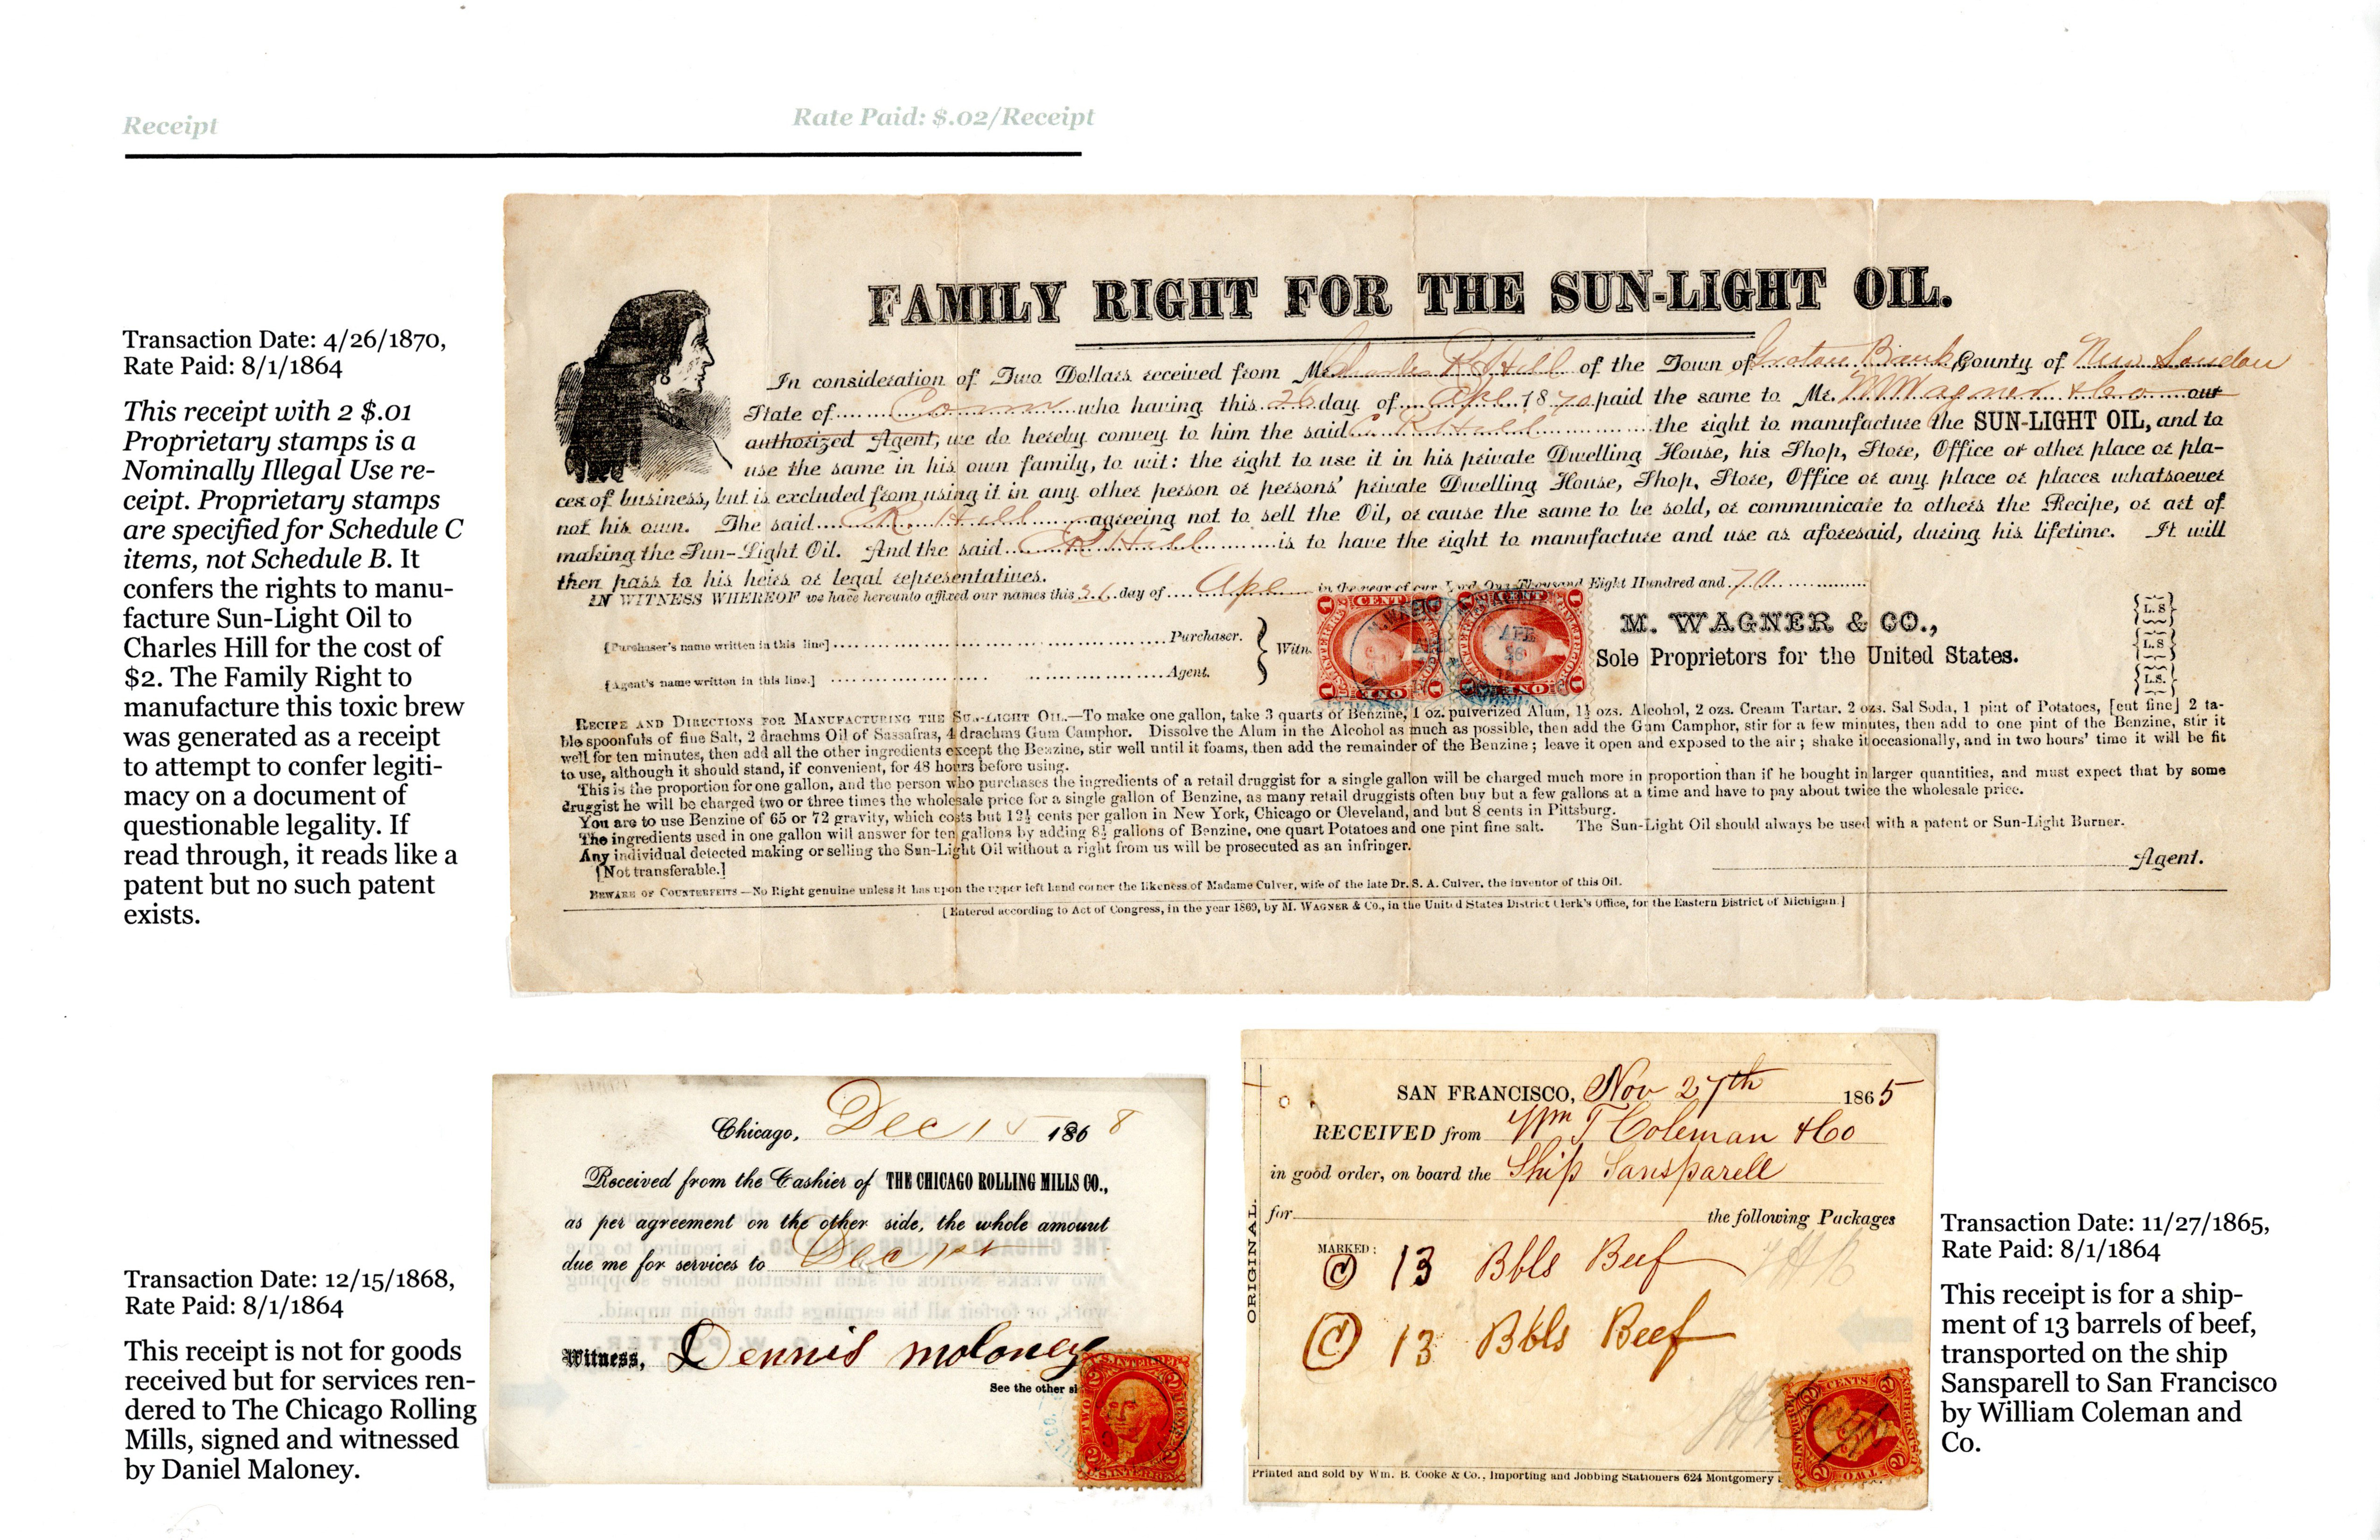 Receipt
Rate Paid: $.02/Receipt
Transaction Date: 4/26/1870,
Rate Paid: 8/1/1864
This receipt with 2 $.01
Proprietary stamps is a
Nominally Illegal Use re-
ceipt. Proprietary stamps
are specified for Schedule C
items, not Schedule B. It
confers the rights to manu-
facture Sun-Light Oil to
Charles Hill for the cost of
$2. The Family Right to
manufacture this toxic brew
was generated as a receipt
to attempt to confer legiti-
macy on a document of
questionable legality. If
read through, it reads like a
patent but no such patent
exists.
FAMILY RIGHT FOR THE SUN-LIGHT OIL.
In consideration of Two Dollars received from Mr Charles R Hill of the Town of Groton Bank County of New London
State of Conn who having this 26 day of Apl 1870 paid the same to Mr. M Wagner & Co our
authorized Agent, we do hereby convey to him the said C R Hill the right to manufacture the SUN-LIGHT OIL, and to
use the same in his own family, to wit: the right to use it in his private Dwelling House, his Shop, Store, Office or other place or pla-
ces of business, but is excluded from using it in any other person or persons' private Dwelling House, Shop, Store, Office or any place or places whatsoever
not his own. The said C R. Hill agreeing not to sell the Oil, or cause the same to be sold, or communicate to others the Recipe, or art of
making the Sun-Light Oil. And the said C R Hill is to have the right to manufacture and use as aforesaid, during his lifetime. It will
then pass to his heirs or legal representatives.
IN WITNESS WHEREOF we have hereunto affixed our names this 26 day of Apl in the year of our Lord One Thousand Eight Hundred and 70
[Purchaser's name written in this line] Purchaser.
[Agent's name written in this line.] Agent.
Witn
M. WAGNER & CO.,
Sole Proprietors for the United States.
L. S
L. S
L. S.
RECIPE AND DIRECTIONS FOR MANUFACTURING THE SUN-LIGHT OIL.—To make one gallon, take 3 quarts of Benzine, 1 oz. pulverized Alum, 1½ ozs. Alcohol, 2 ozs. Cream Tartar, 2 ozs. Sal Soda, 1 pint of Potatoes, [cut fine] 2 ta-
ble spoonfuls of fine Salt, 2 drachms Oil of Sassafras, 4 drachms Gum Camphor. Dissolve the Alum in the Alcohol as much as possible, then add the Gum Camphor, stir for a few minutes, then add to one pint of the Benzine, stir it
well for ten minutes, then add all the other ingredients except the Benzine, stir well until it foams, then add the remainder of the Benzine; leave it open and exposed to the air; shake it occasionally, and in two hours' time it will be fit
to use, although it should stand, if convenient, for 48 hours before using.
This is the proportion for one gallon, and the person who purchases the ingredients of a retail druggist for a single gallon will be charged much more in proportion than if he bought in larger quantities, and must expect that by some
druggist he will be charged two or three times the wholesale price for a single gallon of Benzine, as many retail druggists often buy but a few gallons at a time and have to pay about twice the wholesale price.
You are to use Benzine of 65 or 72 gravity, which costs but 12½ cents per gallon in New York, Chicago or Cleveland, and but 8 cents in Pittsburg.
The ingredients used in one gallon will answer for ten gallons by adding 8½ gallons of Benzine, one quart Potatoes and one pint fine salt. The Sun-Light Oil should always be used with a patent or Sun-Light Burner.
Any individual detected making or selling the Sun-Light Oil without a right from us will be prosecuted as an infringer.
[Not transferable.]
Agent.
BEWARE OF COUNTERFEITS—No Right genuine unless it has upon the upper left hand corner the likeness of Madame Culver, wife of the late Dr. S. A. Culver, the inventor of this Oil.
[Entered according to Act of Congress, in the year 1869, by M. WAGNER & Co., in the United States District Clerk's Office, for the Eastern District of Michigan.]
Transaction Date: 12/15/1868,
Rate Paid: 8/1/1864
This receipt is not for goods
received but for services ren-
dered to The Chicago Rolling
Mills, signed and witnessed
by Daniel Maloney.
Chicago, Dec 15 1868
Received from the Cashier of THE CHICAGO ROLLING MILLS CO.,
as per agreement on the other side, the whole amount
due me for services to Dec 1st
Witness, Dennis Moloney
See the other si
SAN FRANCISCO, Nov 27th 1865
RECEIVED from Wm T Coleman & Co
in good order, on board the Ship Sansparell
for the following Packages
ORIGINAL.
MARKED:
C 13 Bbls Beef
C 13 Bbls Beef
Printed and sold by Wm. B. Cooke & Co., Importing and Jobbing Stationers 624 Montgomery
Transaction Date: 11/27/1865,
Rate Paid: 8/1/1864
This receipt is for a ship-
ment of 13 barrels of beef,
transported on the ship
Sansparell to San Francisco
by William Coleman and
Co.